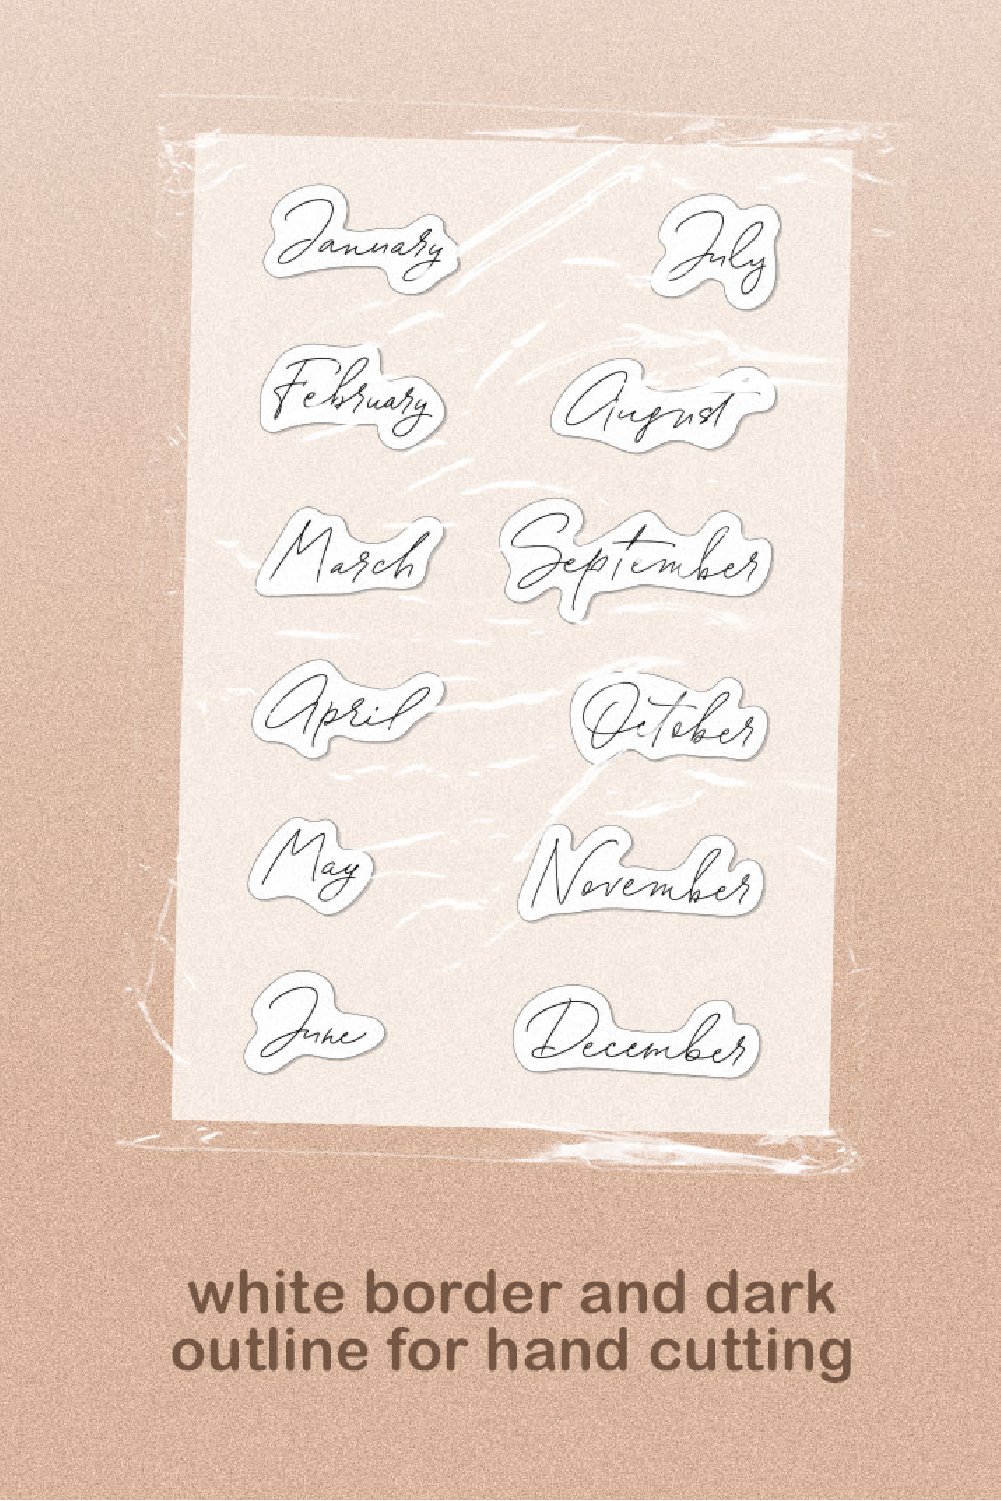 January
February
March
April
May
June
July
August
September
October
November
December
white border and dark
outline for hand cutting